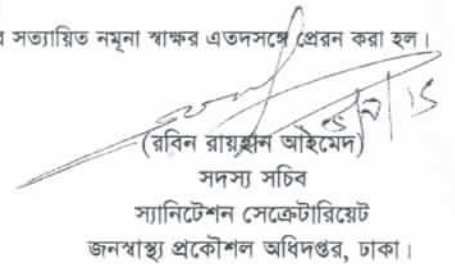 সত্যায়িত নমূনা স্বাক্ষর এতদসঙ্গে প্রেরন করা হল।
(রবিন রায়হান আহমেদ)
সদস্য সচিব
স্যানিটেশন সেক্রেটারিয়েট
জনস্বাস্থ্য প্রকৌশল অধিদপ্তর, ঢাকা।